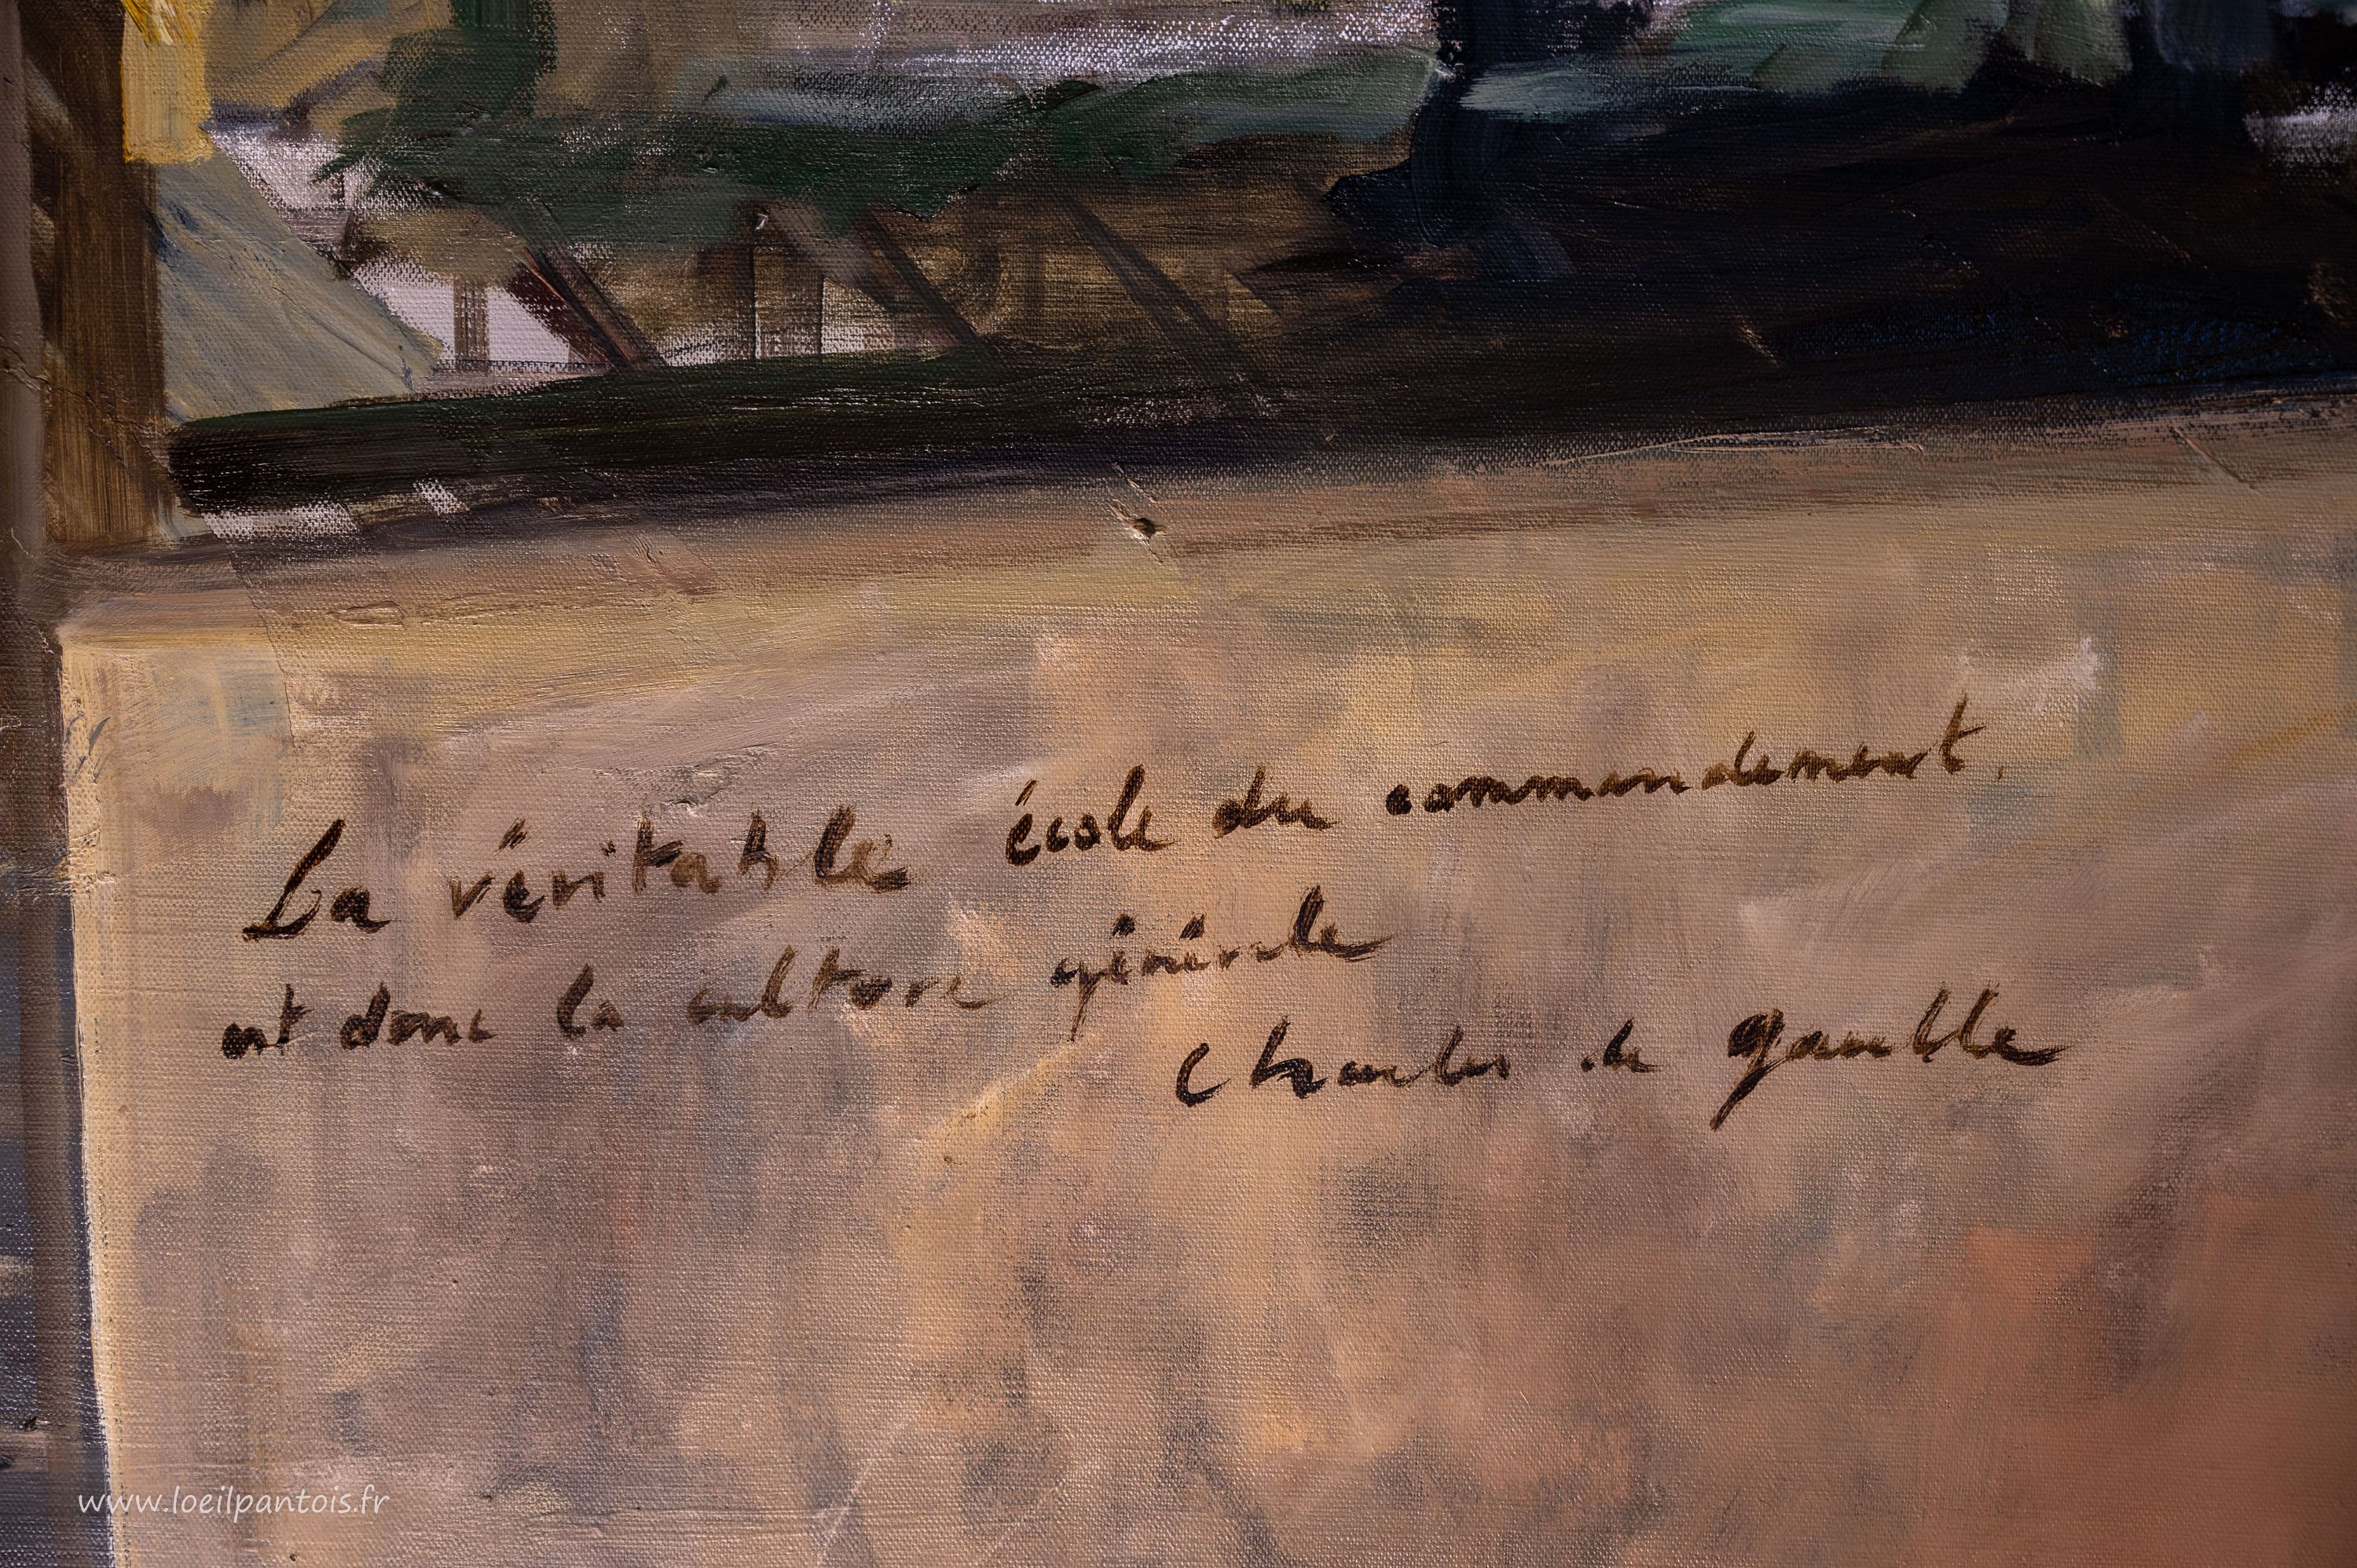 La véritable école du commandement.
est donc la culture générale
Charles de gaulle
www.loeilpantois.fr